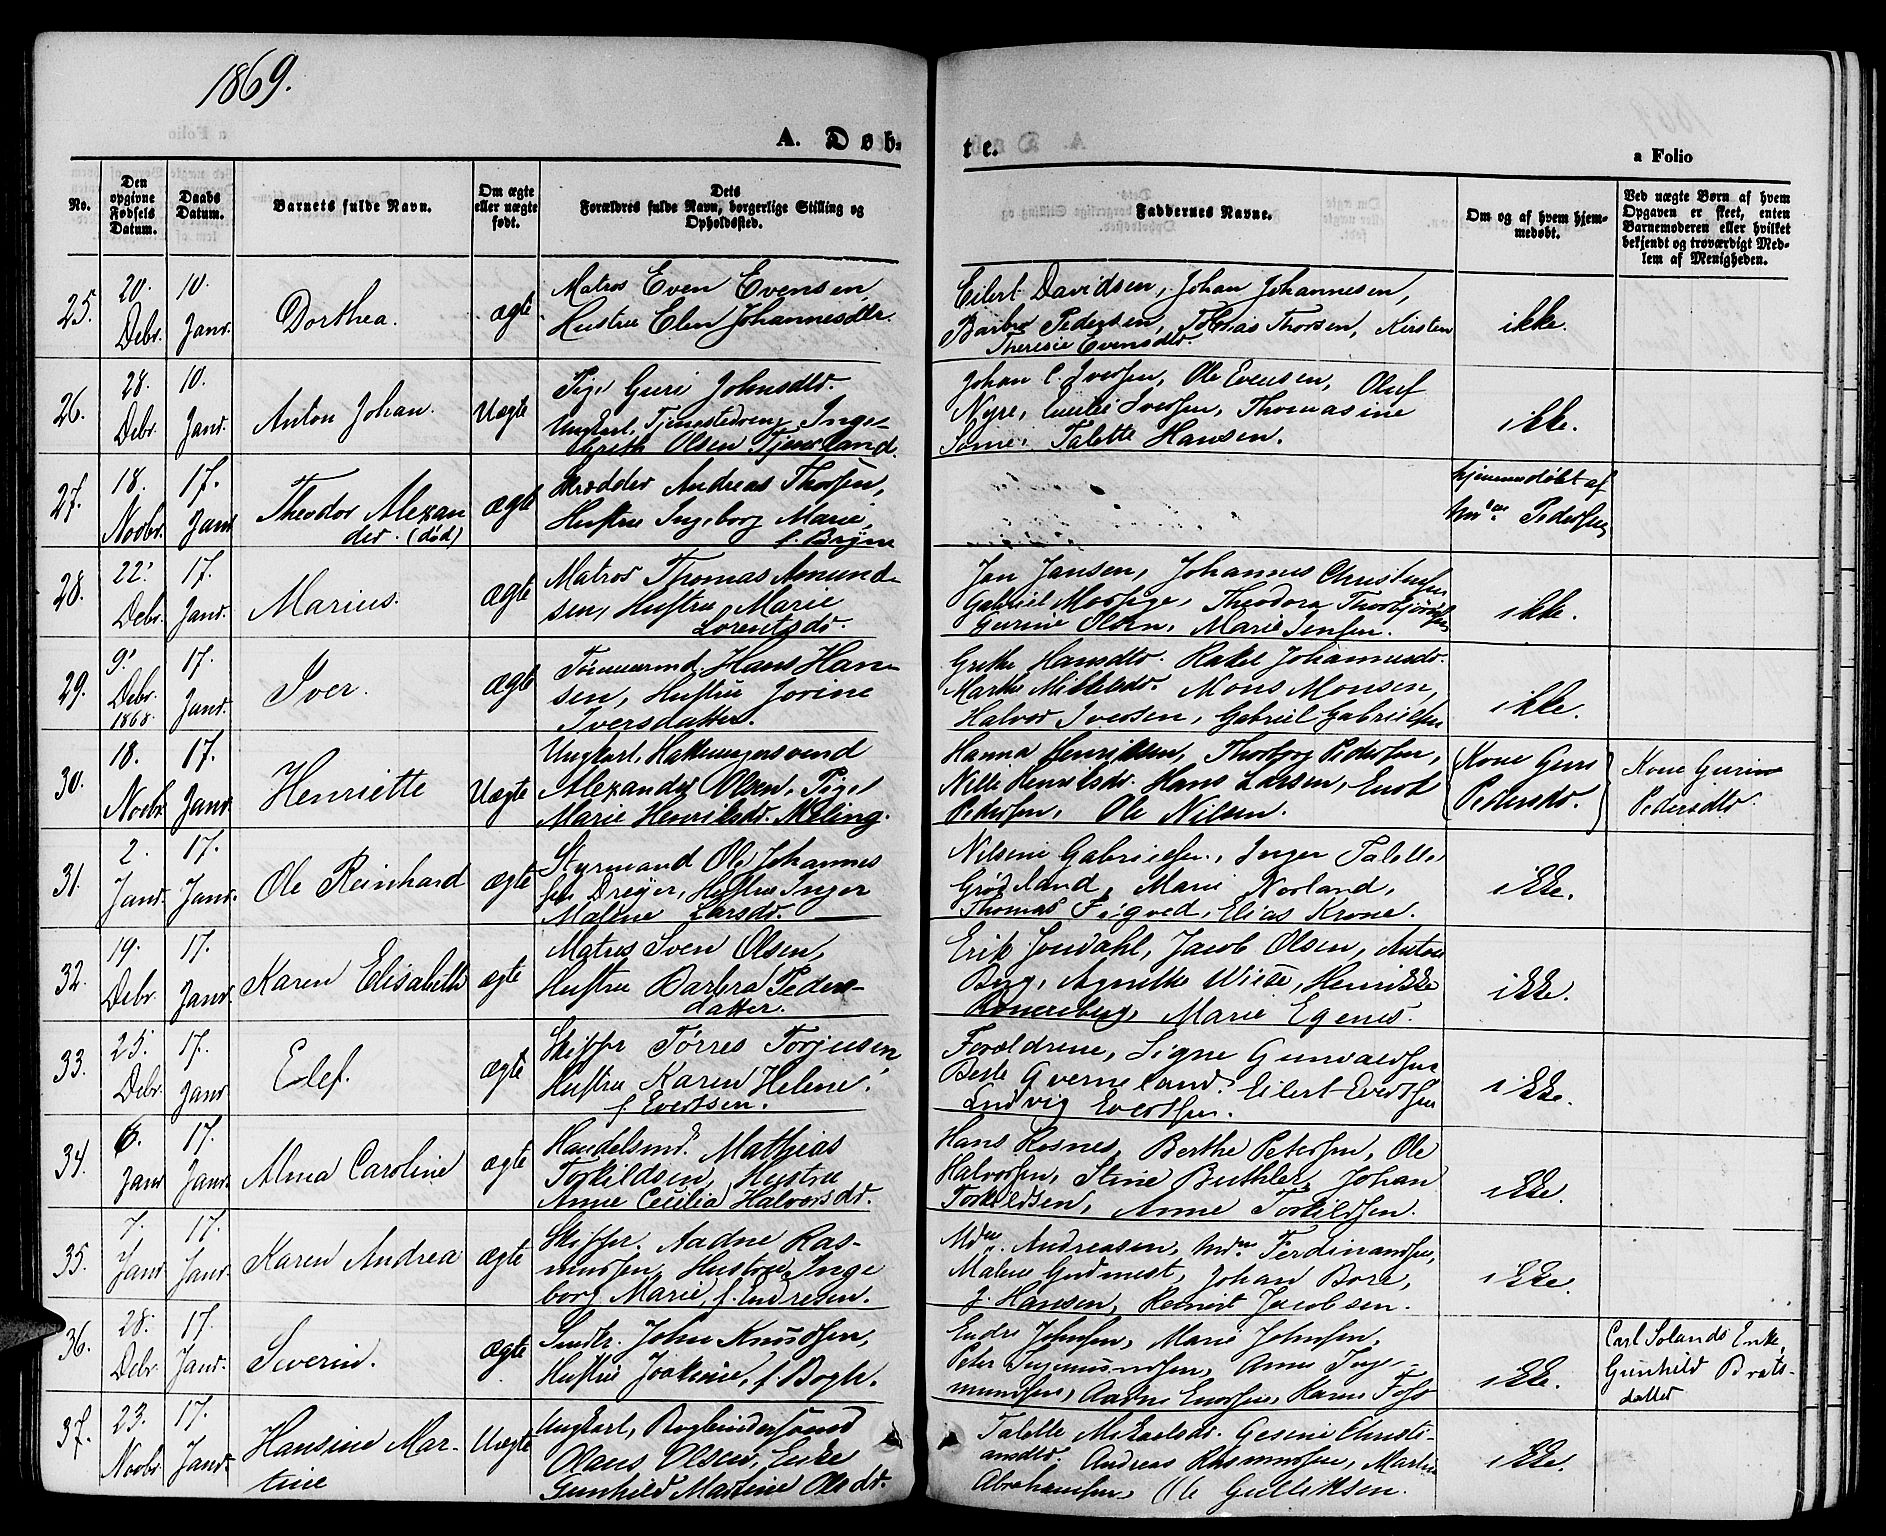 1869.
A. Døb-
te.
a Folio
No.
Den opgivne Fødsels Datum.
Daabs Datum.
Barnets fulde Navn.
Om ægte eller uægte født.
Dets Forældres fulde Navn, borgerlige Stilling og Opholdssted.
Faddernes Navne.
Om og af hvem hjemmedøbt.
Ved uægte Børn af hvem Opgaven er skeet, enten Barnemoderen eller hvilket bekjendt og troværdigt Medlem af Menigheden.
25.
20. Debr.
10. Janr.
Dorthea.
ægte
Matros Even Evensen,
Hustru Elen Johannesdtr.
Eilert Davidsen, Johan Johannesen,
Barbro Pedersen, Tobias Thorsen, Kirsten
Theresie Evensdtr.
ikke.
26.
28. Debr.
10. Janr.
Anton Johan.
Uægte
Pige Guri Johnsdtr.
Ungkarl, Tjenestedreng Inge-
breth Olsen Tjensland.
Johan C. Iversen, Ole Evensen, Oluf
Nyre, Emilie Iversen, Thomasine
Talette Hansen.
ikke.
27.
18. Novbr.
17. Janr
Theodor Alexan
der. (død)
ægte
Skrædder Andreas Thorsen,
Hustru Ingeborg Marie,
f. Bryne
hjemmedøbt af
Pedersen
28.
22. Debr.
17. Janr.
Marius.
ægte
Matros Thomas Amund-
sen, Hustru Marie
Lorentsdr.
Jan Jansen, Johannes Christensen
Gabriel Mossige, Theodora Thorbjørnsen
Gurine Olsen, Marie Jensen.
ikke.
29.
9. Debr. 1868.
17. Janr.
Iver.
ægte
Tømmermd. Hans Han-
sen, Hustru Jorine
Iversdatter.
Grethe Hansdtr. Rakel Johannesdr.
Marthe Mikkelsdr. Mons Monsen,
Halvor Iversen, Gabriel Gabrielsen
ikke.
30.
18. Novbr.
17. Janr.
Henriette
Uægte
Ungkarl, Hattemagersvend
Alexander Olsen, Pige
Marie Henriksdr. Meling.
Hanna Henriksen, Thorborg Pedersen,
Nille Henriksdr. Hans Larsen, Enok
Pedersen, Ole Nilsen.
Kone Guri
Pedersdr.
Kone Gurine
Pedersdtr.
31.
2. Janr.
17. Janr.
Ole Reinhard
ægte
Styrmand Ole Johannes
sen Dreyer, Hustru Inger
Malene Larsdr.
Nilsine Gabrielsen, Inger Talette
Grødeland, Marie Norland,
Thomas Figved, Elias Krone.
ikke.
32.
19. Debr.
17. Janr.
Karen Elisabeth
ægte
Matros Sven Olsen,
Hustru Barbra Peders-
datter.
Erik Jondahl, Jacob Olsen, Anton
Berg, Agnethe Wiese, Henrikke
Marie Egenes.
ikke.
33.
25. Debr.
17. Janr
Elef.
ægte
Skipper Tørres Torjusen
Hustru Karen Helene,
f. Evertsen.
Forældrene, Signe Gunvaldsen
Berte Qverneland. Eilert Evertsen
Ludvig Evertsen.
ikke.
34.
6. Janr
17. Janr.
Alma Caroline
ægte
Handelsmd. Mathias
Torkildsen, Hustru
Anne Cecilia Halvorsdr.
Hans Rosnes, Berthe Petersen, Ole
Halvorsen, Stine Buthler, Johan
Torkildsen, Anne Torkildsen.
ikke.
35.
7. Janr
17. Janr.
Karen Andrea
ægte
Skipper Aadne Ras-
mussen, Hustru Inge
borg Marie, f. Endresen.
Mdm. Andreasen, Mdm. Ferdinandsen,
Malene Gudmest, Johan Bore,
J. Hansen, Reinert Jacobsen.
ikke.
36.
28. Debr.
17. Janr.
Severin.
ægte
Snedkr. John Knudsen,
Hustru Joakime, f. Bogh.
Endre Johnsen, Marie Johnsen,
Peter Ingemundsen, Anne Inge-
mundsen, Aadne Enersen, Karen Foss
ikke.
Carl Solands Enke,
Gunhild Brats-
datter
37.
23. Novbr
17. Janr.
Hansine Mar-
tine
Uægte
Ungkarl, Bogbindersvend
Olaus Olsen, Enke
Gunhild Martine Olsdr.
Talette Mikaelsdr. Gesine Christi-
ansdtr. Andreas Rasmussen, Martin
Abrahamsen, Ole Gulliksen.
ikke.